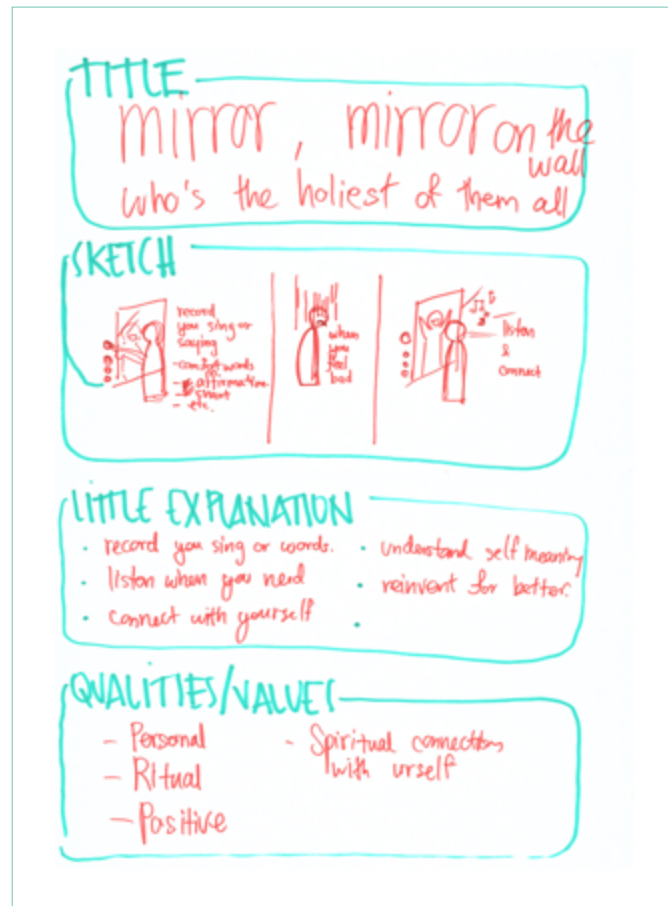 TITLE
mirror, mirror on the
wall
who's the holiest of them all
SKETCH
record
you sing or
saying
- comfort words
- affirmation
- etc.
when
you
feel
bad
liston
&
connect
LITTLE EXPLANATION
• record you sing or words.
• liston when you need
• connect with yourself
• understand self meaning
• reinvent for better.
•
QUALITIES/VALUES
- Personal
- Ritual
- Positive
- Spiritual connection
with urself